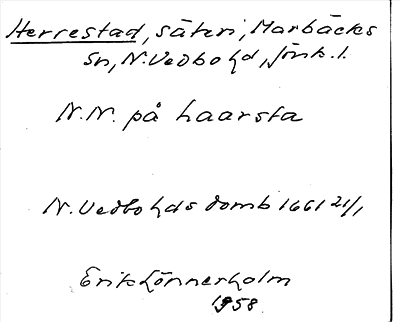 Herrestad, säteri, Marbäcks
sn, N. Vedbo hd, Jönk. l.
N.N. på haarsta
N. Vedbo hds domb 1661 21/1
Erik Lönnerholm
1958